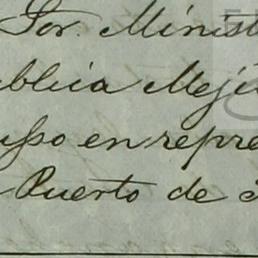 Sor. Minist
ública Meji
uso en repre
Puerto de